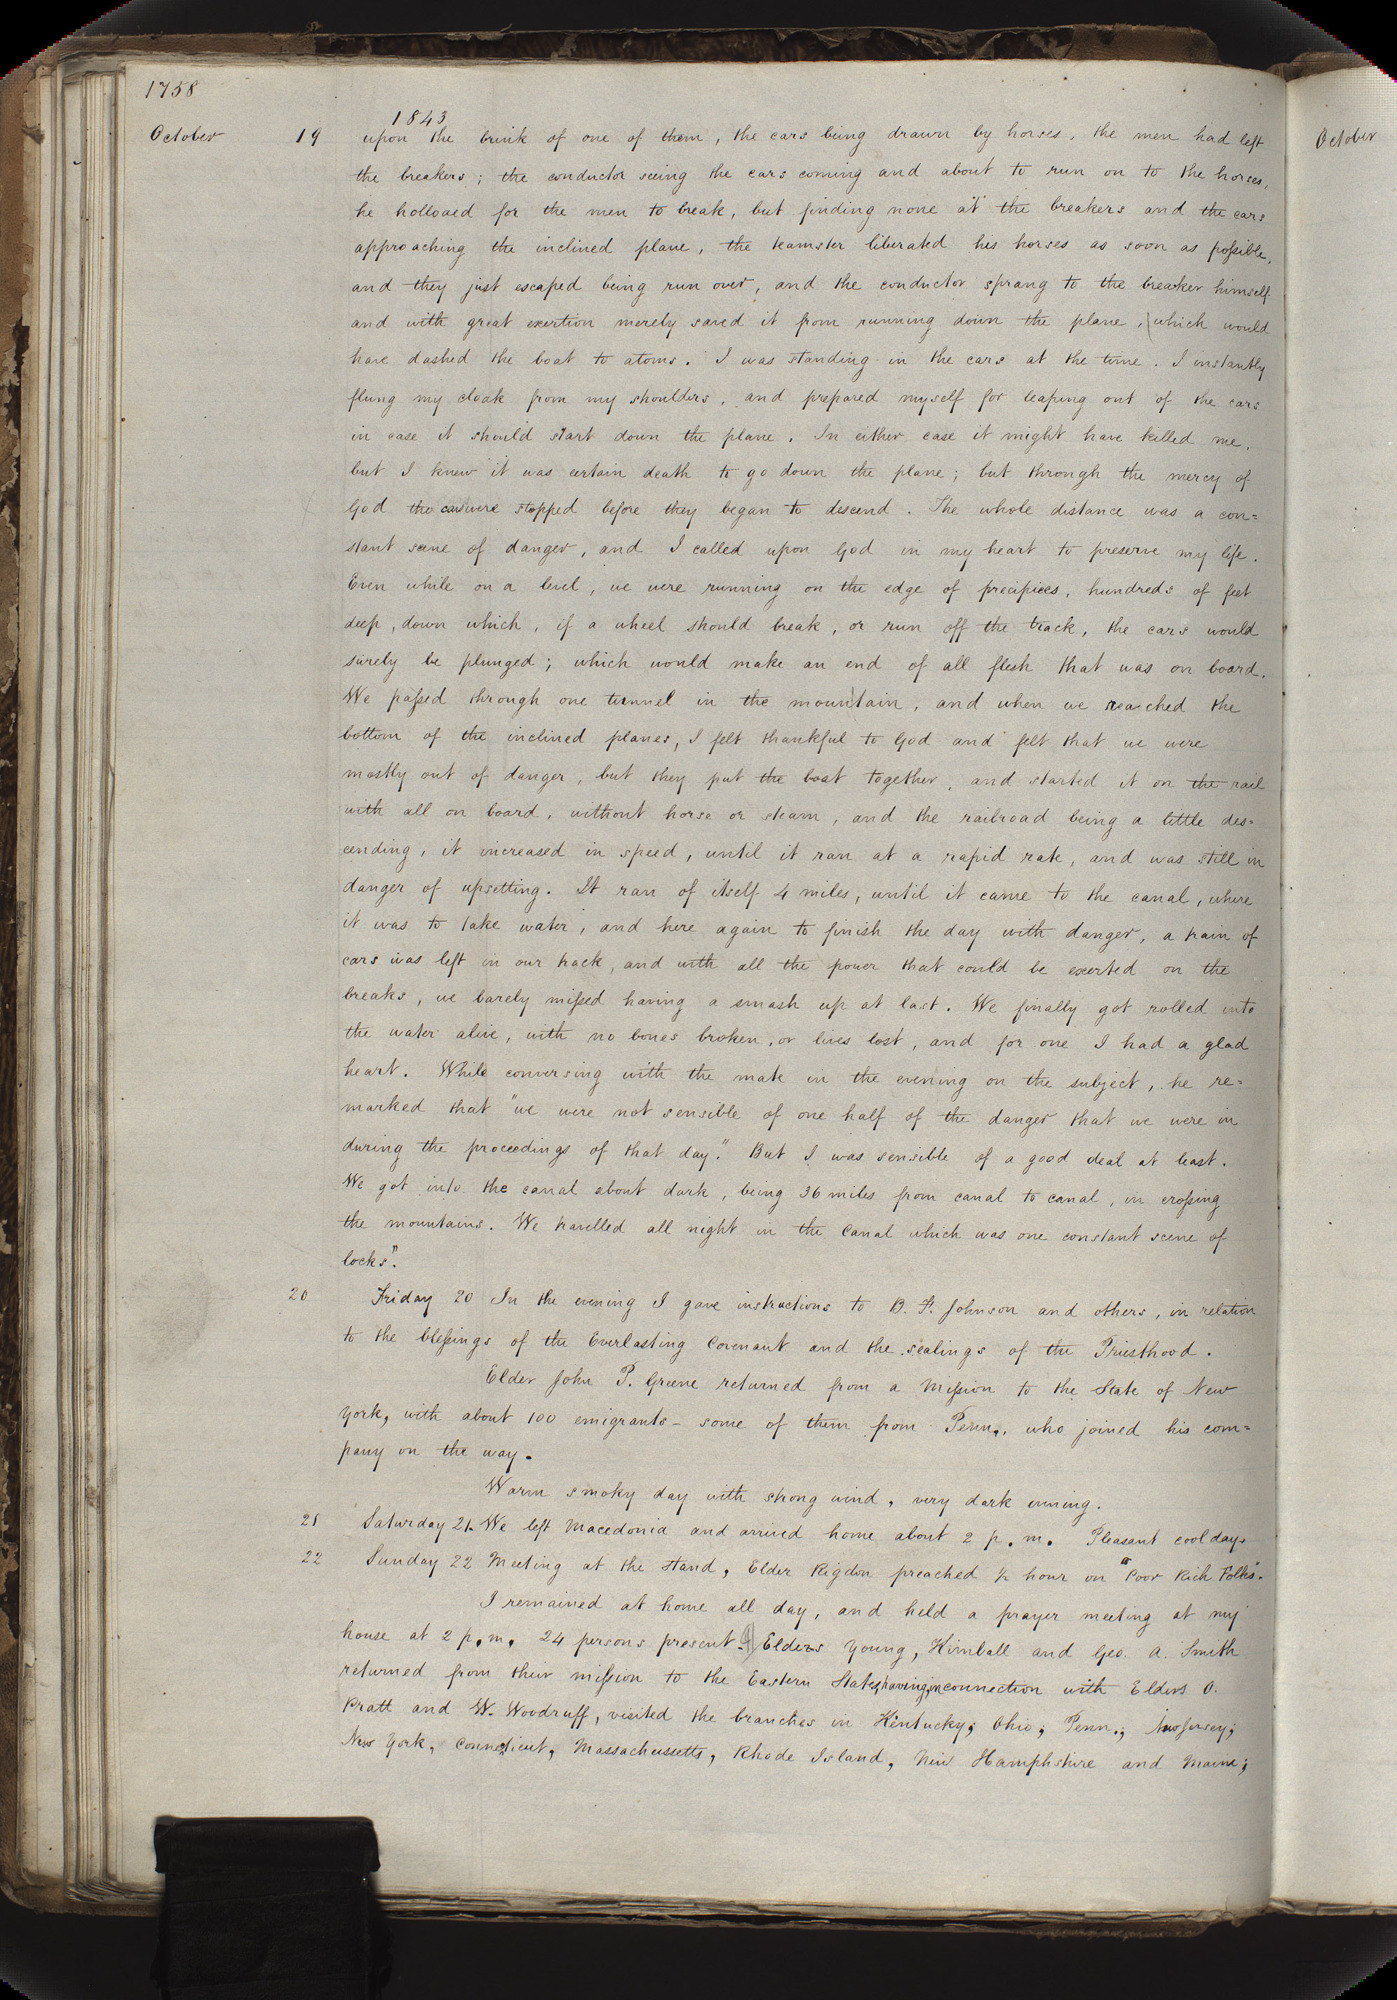 1758
1843
October 19 upon the brink of one of them, the cars being drawn by horses, the men had left
the breakers; the conductor seeing the cars coming and about to run on to the horses,
he holloaed for the men to break, but finding none at the breakers and the cars
approaching the inclined plane, the teamster liberated his horses as soon as possible,
and they just escaped being run over, and the conductor sprang to the breaker himself
and with great exertion merely saved it from running down the plane, which would
have dashed the boat to atoms. I was standing in the cars at the time. I instantly
flung my cloak from my shoulders, and prepared myself for leaping out of the cars
in case it should start down the plane. In either case it might have killed me,
but I knew it was certain death to go down the plane; but through the mercy of
God the cars were stopped before they began to descend. The whole distance was a con=
stant scene of danger, and I called upon God in my heart to preserve my life.
Even while on a level, we were running on the edge of precipices, hundreds of feet
deep, down which, if a wheel should break, or run off the track, the cars would
surely be plunged; which would make an end of all flesh that was on board.
We passed through one tunnel in the mountain, and when we reached the
bottom of the inclined planes, I felt thankful to God and felt that we were
mostly out of danger, but they put the boat together, and started it on the rail
with all on board, without horse or steam, and the railroad being a little des=
cending, it increased in speed, until it ran at a rapid rate, and was still in
danger of upsetting. It ran of itself 4 miles, until it came to the canal, where
it was to take water; and here again to finish the day with danger, a train of
cars was left in our track, and with all the power that could be exerted on the
breaks, we barely missed having a smash up at last. We finally got rolled into
the water alive, with no bones broken, or lives lost, and for one I had a glad
heart. While conversing with the mate in the evening on the subject, he re=
marked that "we were not sensible of one half of the danger that we were in
during the proceedings of that day." But I was sensible of a good deal at least.
We got into the canal about dark, being 36 miles from canal to canal, in crossing
the mountains. We travelled all night in the Canal which was one constant scene of
locks".
20 Friday 20 In the evening I gave instructions to B. F. Johnson and others, in relation
to the blessings of the Everlasting Covenant and the sealings of the Priesthood.
Elder John P. Greene returned from a Mission to the State of New
York, with about 100 emigrants – some of them from Penn., who joined his com=
pany on the way.
Warm smoky day with strong wind, very dark evening.
21 Saturday 21. We left Macedonia and arrived home about 2 p.m. Pleasant cool day.
22 Sunday 22 Meeting at the stand, Elder Rigdon preached ½ hour on "Poor Rich Folks".
I remained at home all day, and held a prayer meeting at my
house at 2 p.m. 24 persons present. Elders Young, Kimball and Geo. A. Smith
returned from their mission to the Eastern States, having in connection with Elders O.
Pratt and W. Woodruff, visited the branches in Kentucky; Ohio; Penn.; New Jersey;
New York, Connecticut, Massachussetts, Rhode Island, New Hamphshire and Maine;
October